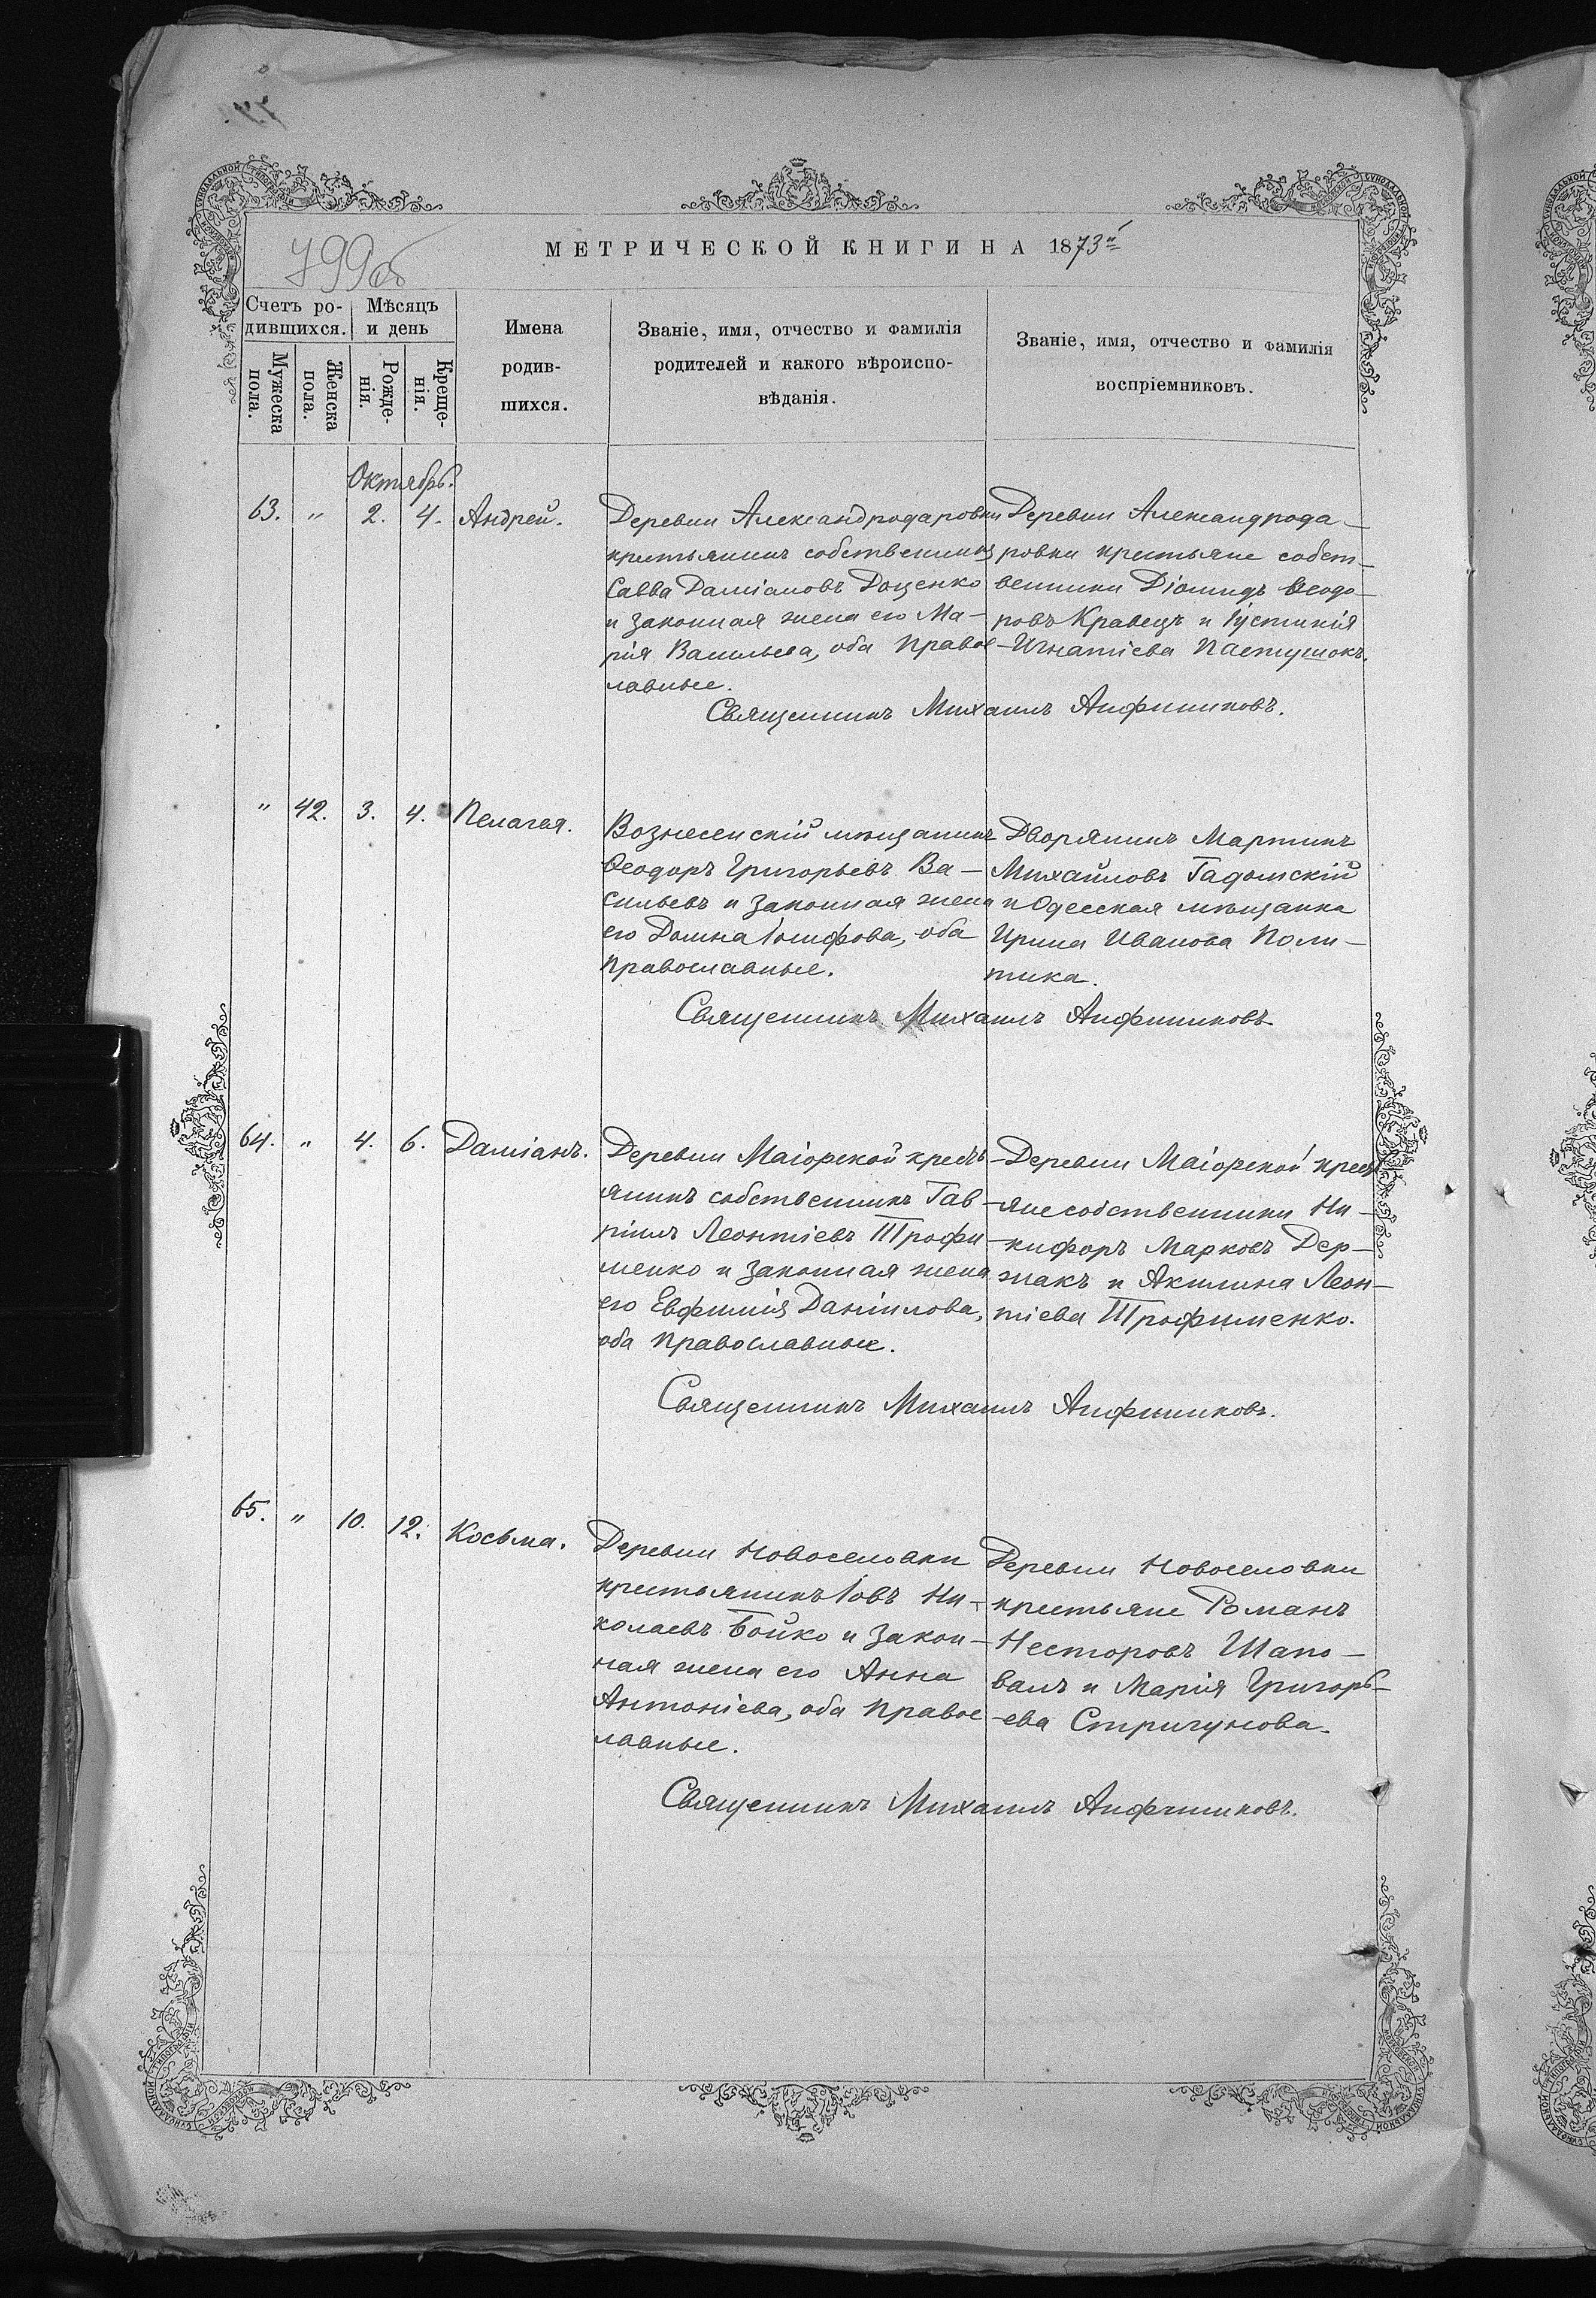 799об
МЕТРИЧЕСКОЙ КНИГИ НА 1873й
Счетъ ро-
дившихся.
Мѣсяцъ
и день
Имена
родив-
шихся.
Званіе, имя, отчество и фамилія
родителей и какого вѣроиспо-
вѣданія.
Званіе, имя, отчество и фамилія
воспріемниковъ.
Мужеска
пола.
Женска
пола.
Рожде-
нія.
Креще-
нія.
Октябрь.
63. " 2. 4. Андрей.
Деревни Александродаровки
крестьянинъ собственникъ
Савва Даміановъ Доценко
и законная жена его Ма-
рія Васильева, оба правос-
лавные.
Деревни Александрода-
ровки крестьяне собст-
венники Діомидъ Ѳеодо-
ровъ Кравецъ и Іустинія
Игнатіева Пастушокъ.
Священникъ Михаилъ Анфиниковъ.
" 42. 3. 4. Пелагея.
Вознесенскій мѣщанинъ
Ѳеодоръ Григорьевъ Ва-
сильевъ и законная жена
его Домна Іосифова, оба
православные.
Дворянинъ Мартинъ
Михаиловъ Гадомскій
и Одесская мѣщанка
Ирина Иванова Поли-
тика.
Священникъ Михаилъ Анфиниковъ
64. " 4. 6. Даміанъ.
Деревни Маіорской кресть-
янинъ собственникъ Гав-
ріилъ Леонтіевъ Трофи-
менко и законная жена
его Евфимія Даніилова,
оба православные.
Деревни Маіорской кресть-
яне собственники Ни-
кифоръ Марковъ Дер-
жакъ и Акилина Леон-
тіева Трофименко.
Священникъ Михаилъ Анфиниковъ.
65. " 10. 12. Косьма.
Деревни Новоселовки
крестьянинъ Іовъ Ни-
колаевъ Бойко и закон-
ная жена его Анна
Антоніева, оба правос-
лавные.
Деревни Новоселовки
крестьяне Романъ
Несторовъ Шапо-
валъ и Марія Григорь-
ева Стригунова.
Священникъ Михаилъ Анфиниковъ.